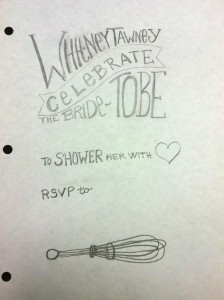 WHITNEY TAWNEY
CELEBRATE
THE BRIDE- TO BE
TO SHOWER HER WITH
RSVP to